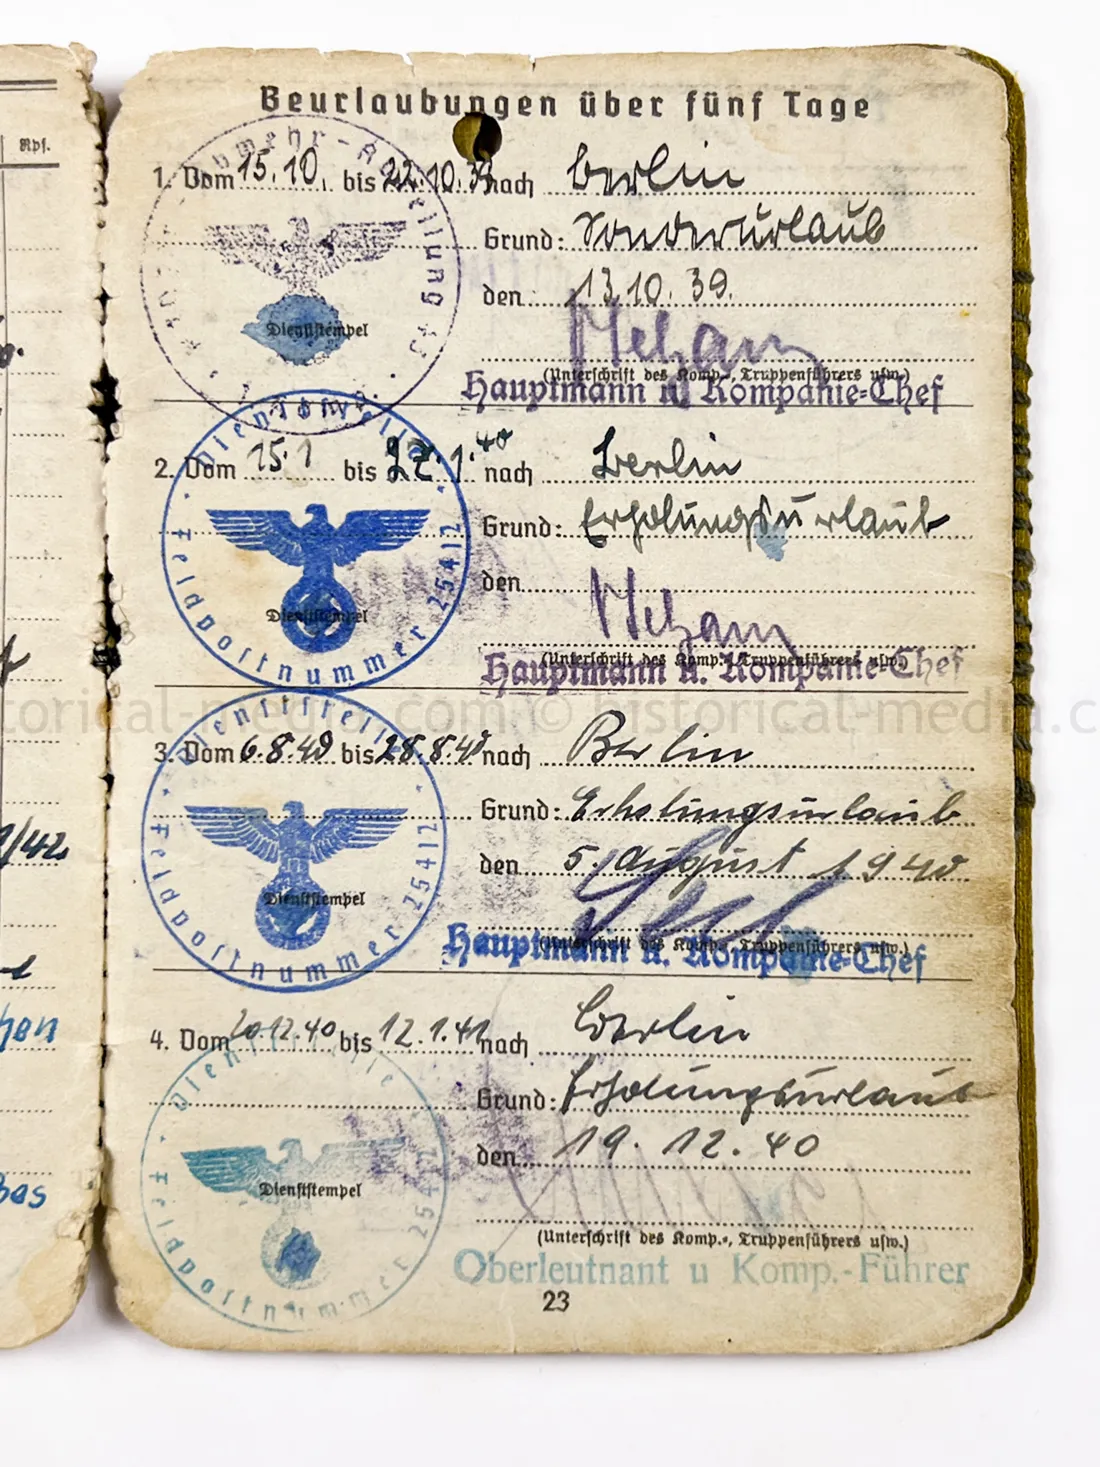 Rpf.
Beurlaubungen über fünf Tage
1. Vom 15.10. bis 22.10.39 nach Berlin
Grund: Sonderurlaub
den 13.10.39.
Dienststempel
(Unterschrift des Komp.-, Truppenführers usw.)
Hauptmann u. Kompanie-Chef
2. Vom 15.1 bis 27.1.40 nach Berlin
Grund: Erholungsurlaub
den
Dienststempel
Dienststelle Feldpostnummer 25412
(Unterschrift des Komp.-, Truppenführers usw.)
Hauptmann u. Kompanie-Chef
historical-media.com © historical-media.c
3. Vom 6.8.40 bis 28.8.40 nach Berlin
Grund: Erholungsurlaub
den 5. August 1940
Dienststempel
Dienststelle Feldpostnummer 25412
(Unterschrift des Komp.-, Truppenführers usw.)
Hauptmann u. Kompanie-Chef
4. Vom 20.12.40 bis 12.1.41 nach Berlin
Grund: Erholungsurlaub
den 19.12.40
Dienststempel
Dienststelle Feldpostnummer 25412
(Unterschrift des Komp.-, Truppenführers usw.)
Oberleutnant u Komp.-Führer
23